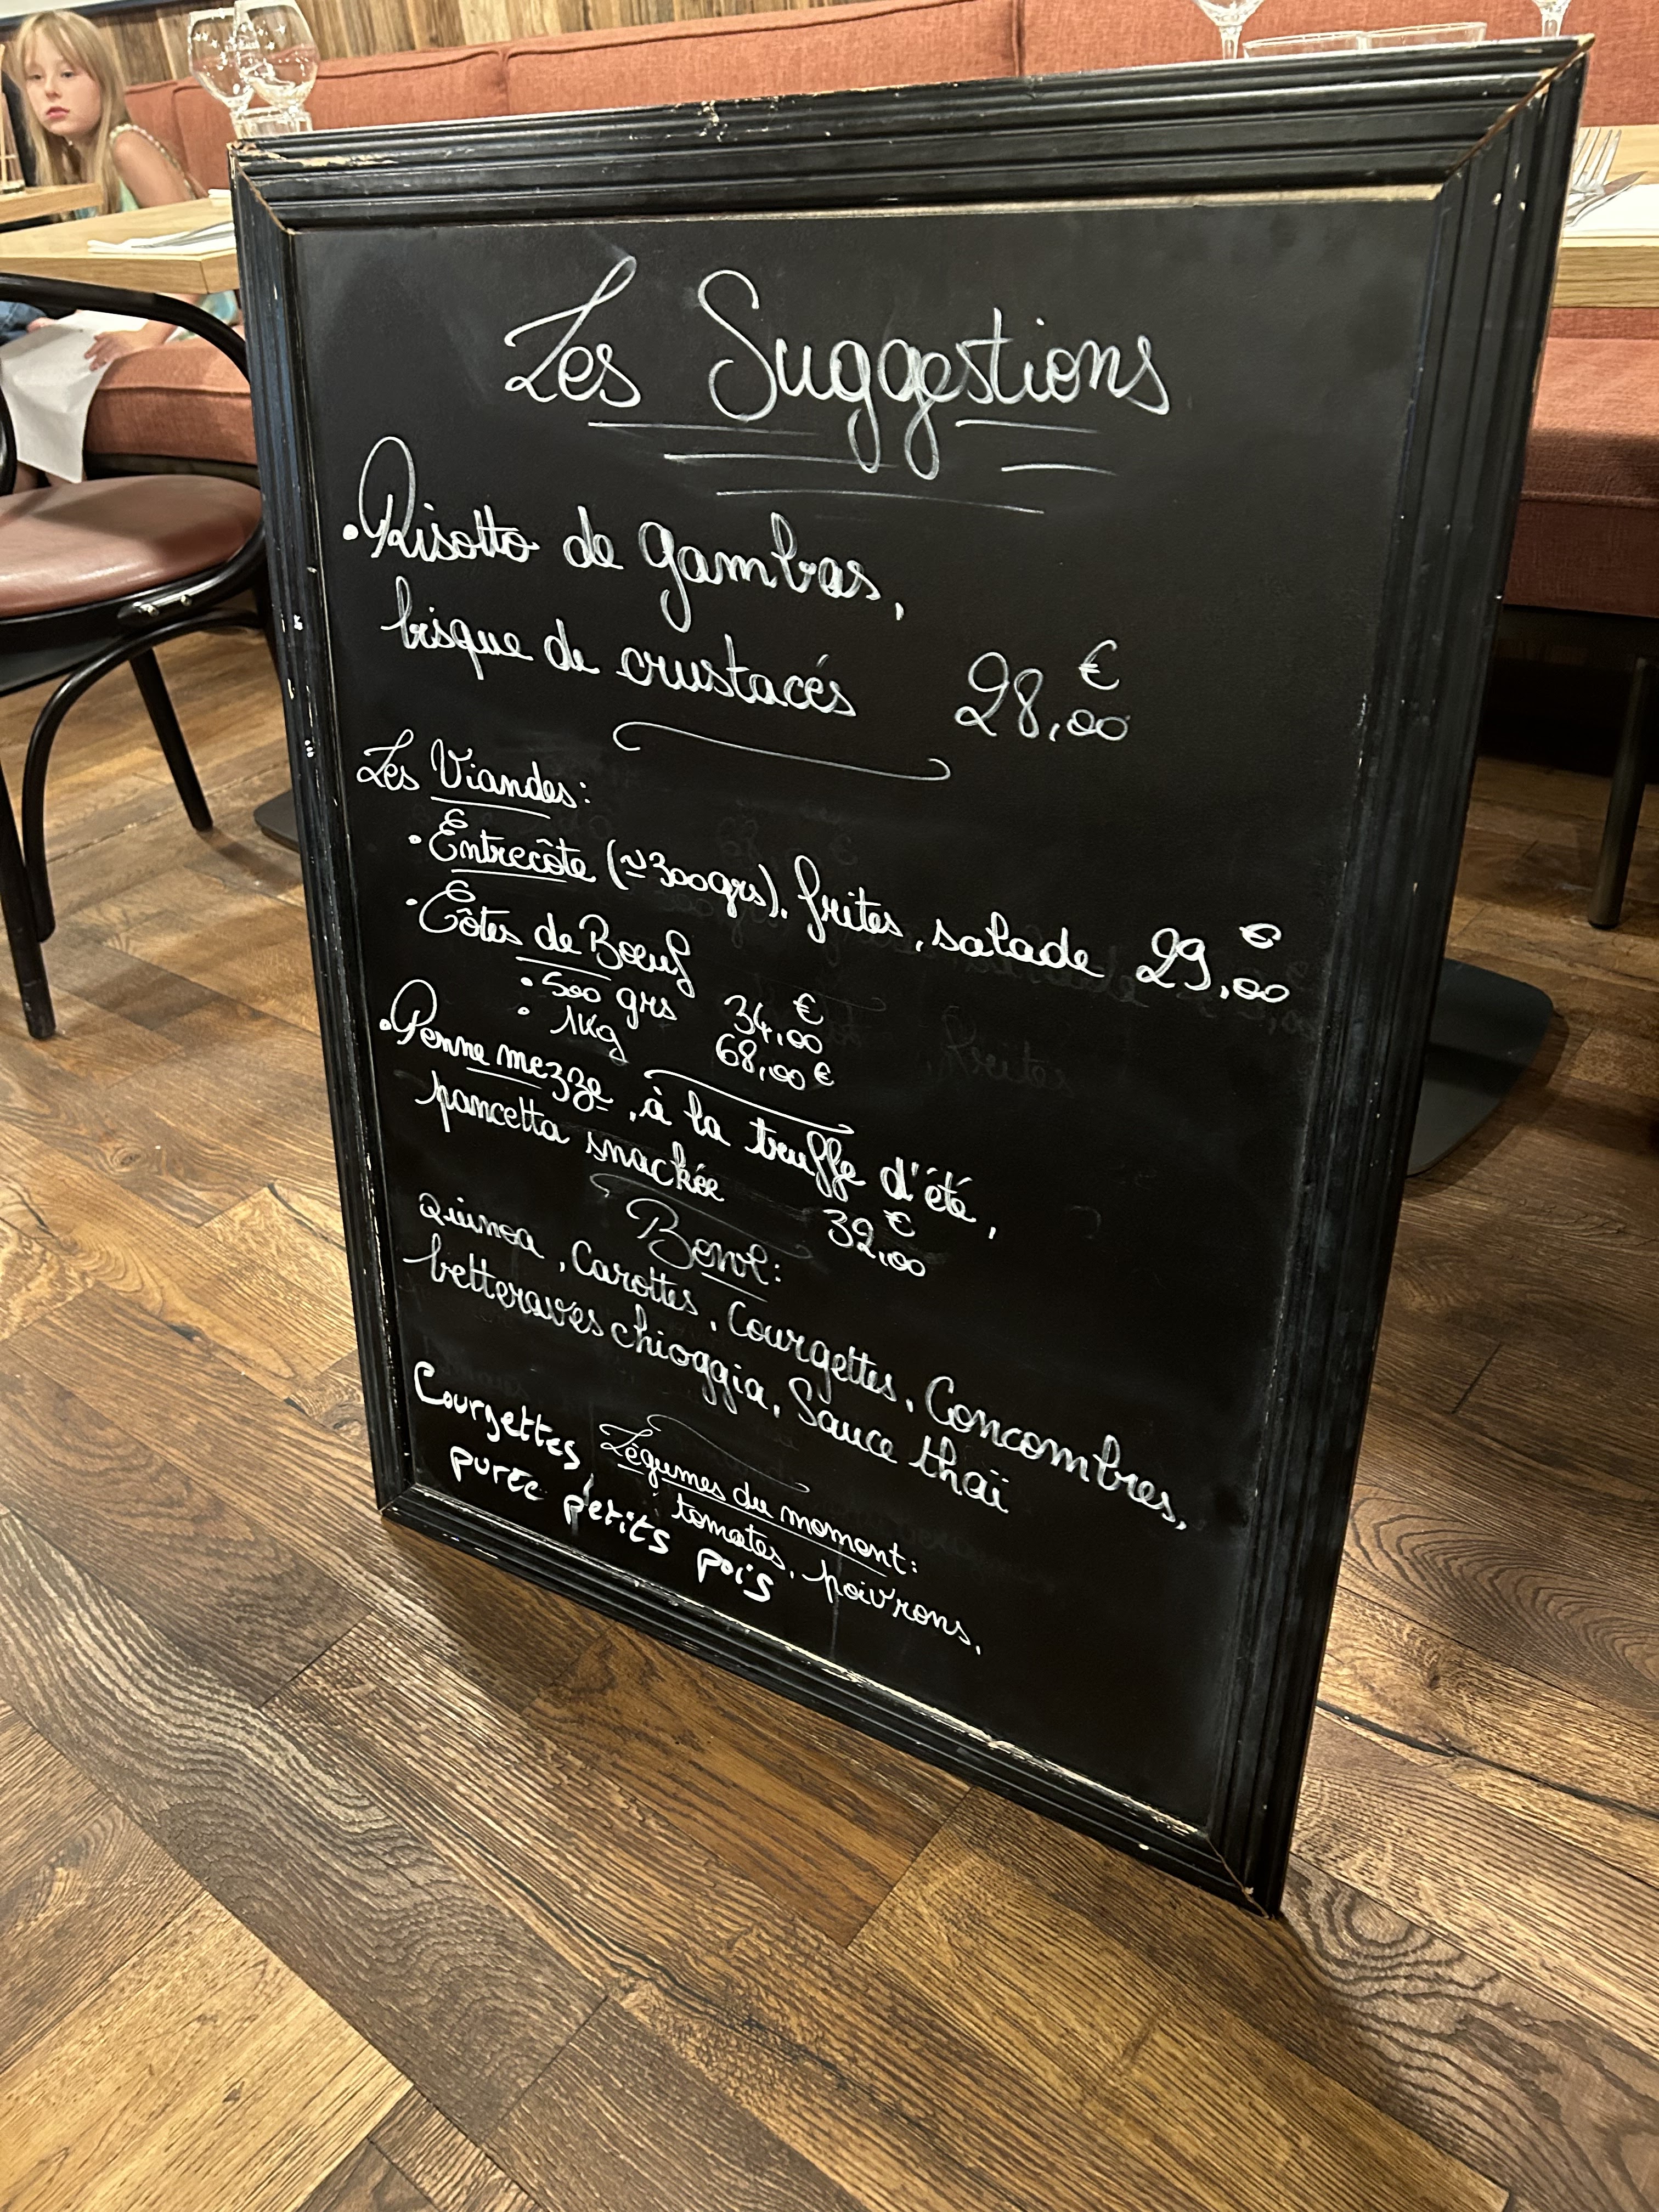 Les Suggestions
• Risotto de gambas,
bisque de crustacés 28,00 €
Les Viandes:
• Entrecôte (≃300grs), frites, salade 29,00 €
• Côtes de Boeuf
• 500 grs 34,00 €
• 1Kg 68,00 €
• Penne mezze, à la truffe d'été,
pancetta snackée 32,00 €
Bowl:
Quinoa, Carottes, Courgettes, Concombres,
betteraves chioggia, Sauce thaï
Légumes du moment:
Courgettes, tomates, poivrons,
purée petits pois